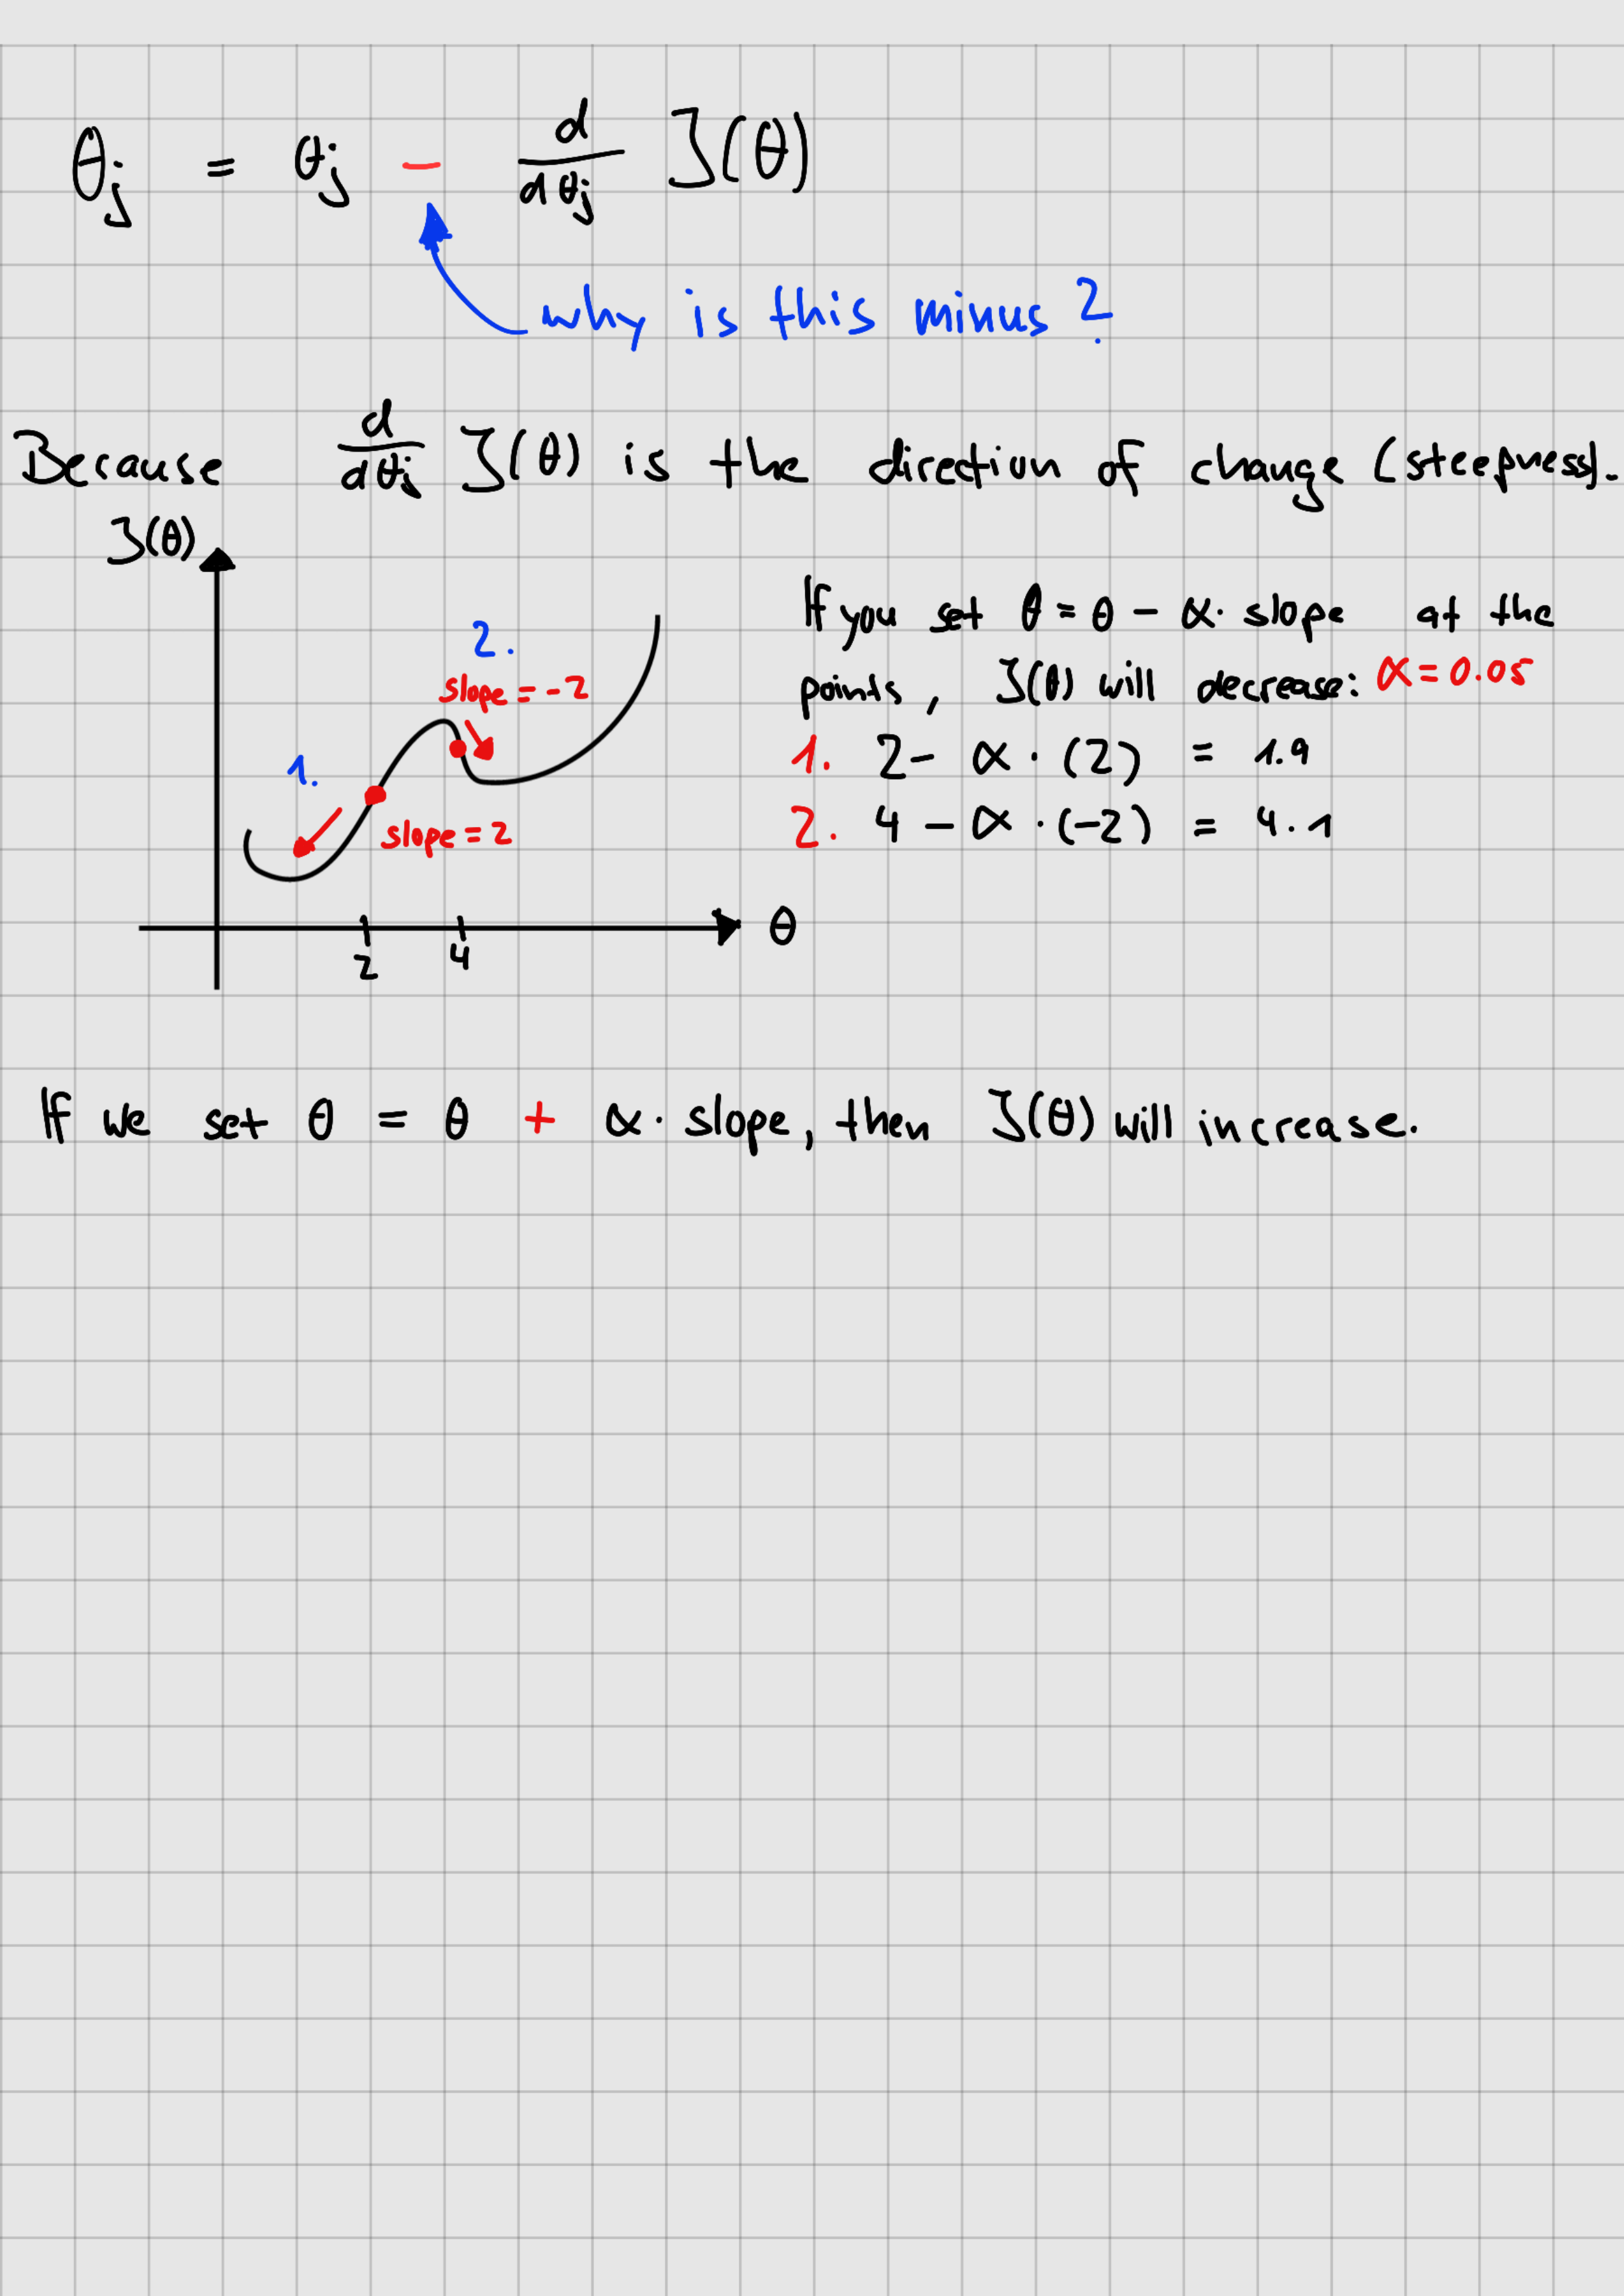 θj = θj − d/dθj J(θ)
why is this minus?
Because d/dθj J(θ) is the direction of change (steepness).
J(θ)
2.
slope = -2
1.
slope = 2
2 4
θ
If you set θ = θ − α· slope at the
points, J(θ) will decrease: α = 0.05
1. 2 − α · (2) = 1.9
2. 4 − α · (−2) = 4.1
If we set θ = θ + α· slope, then J(θ) will increase.